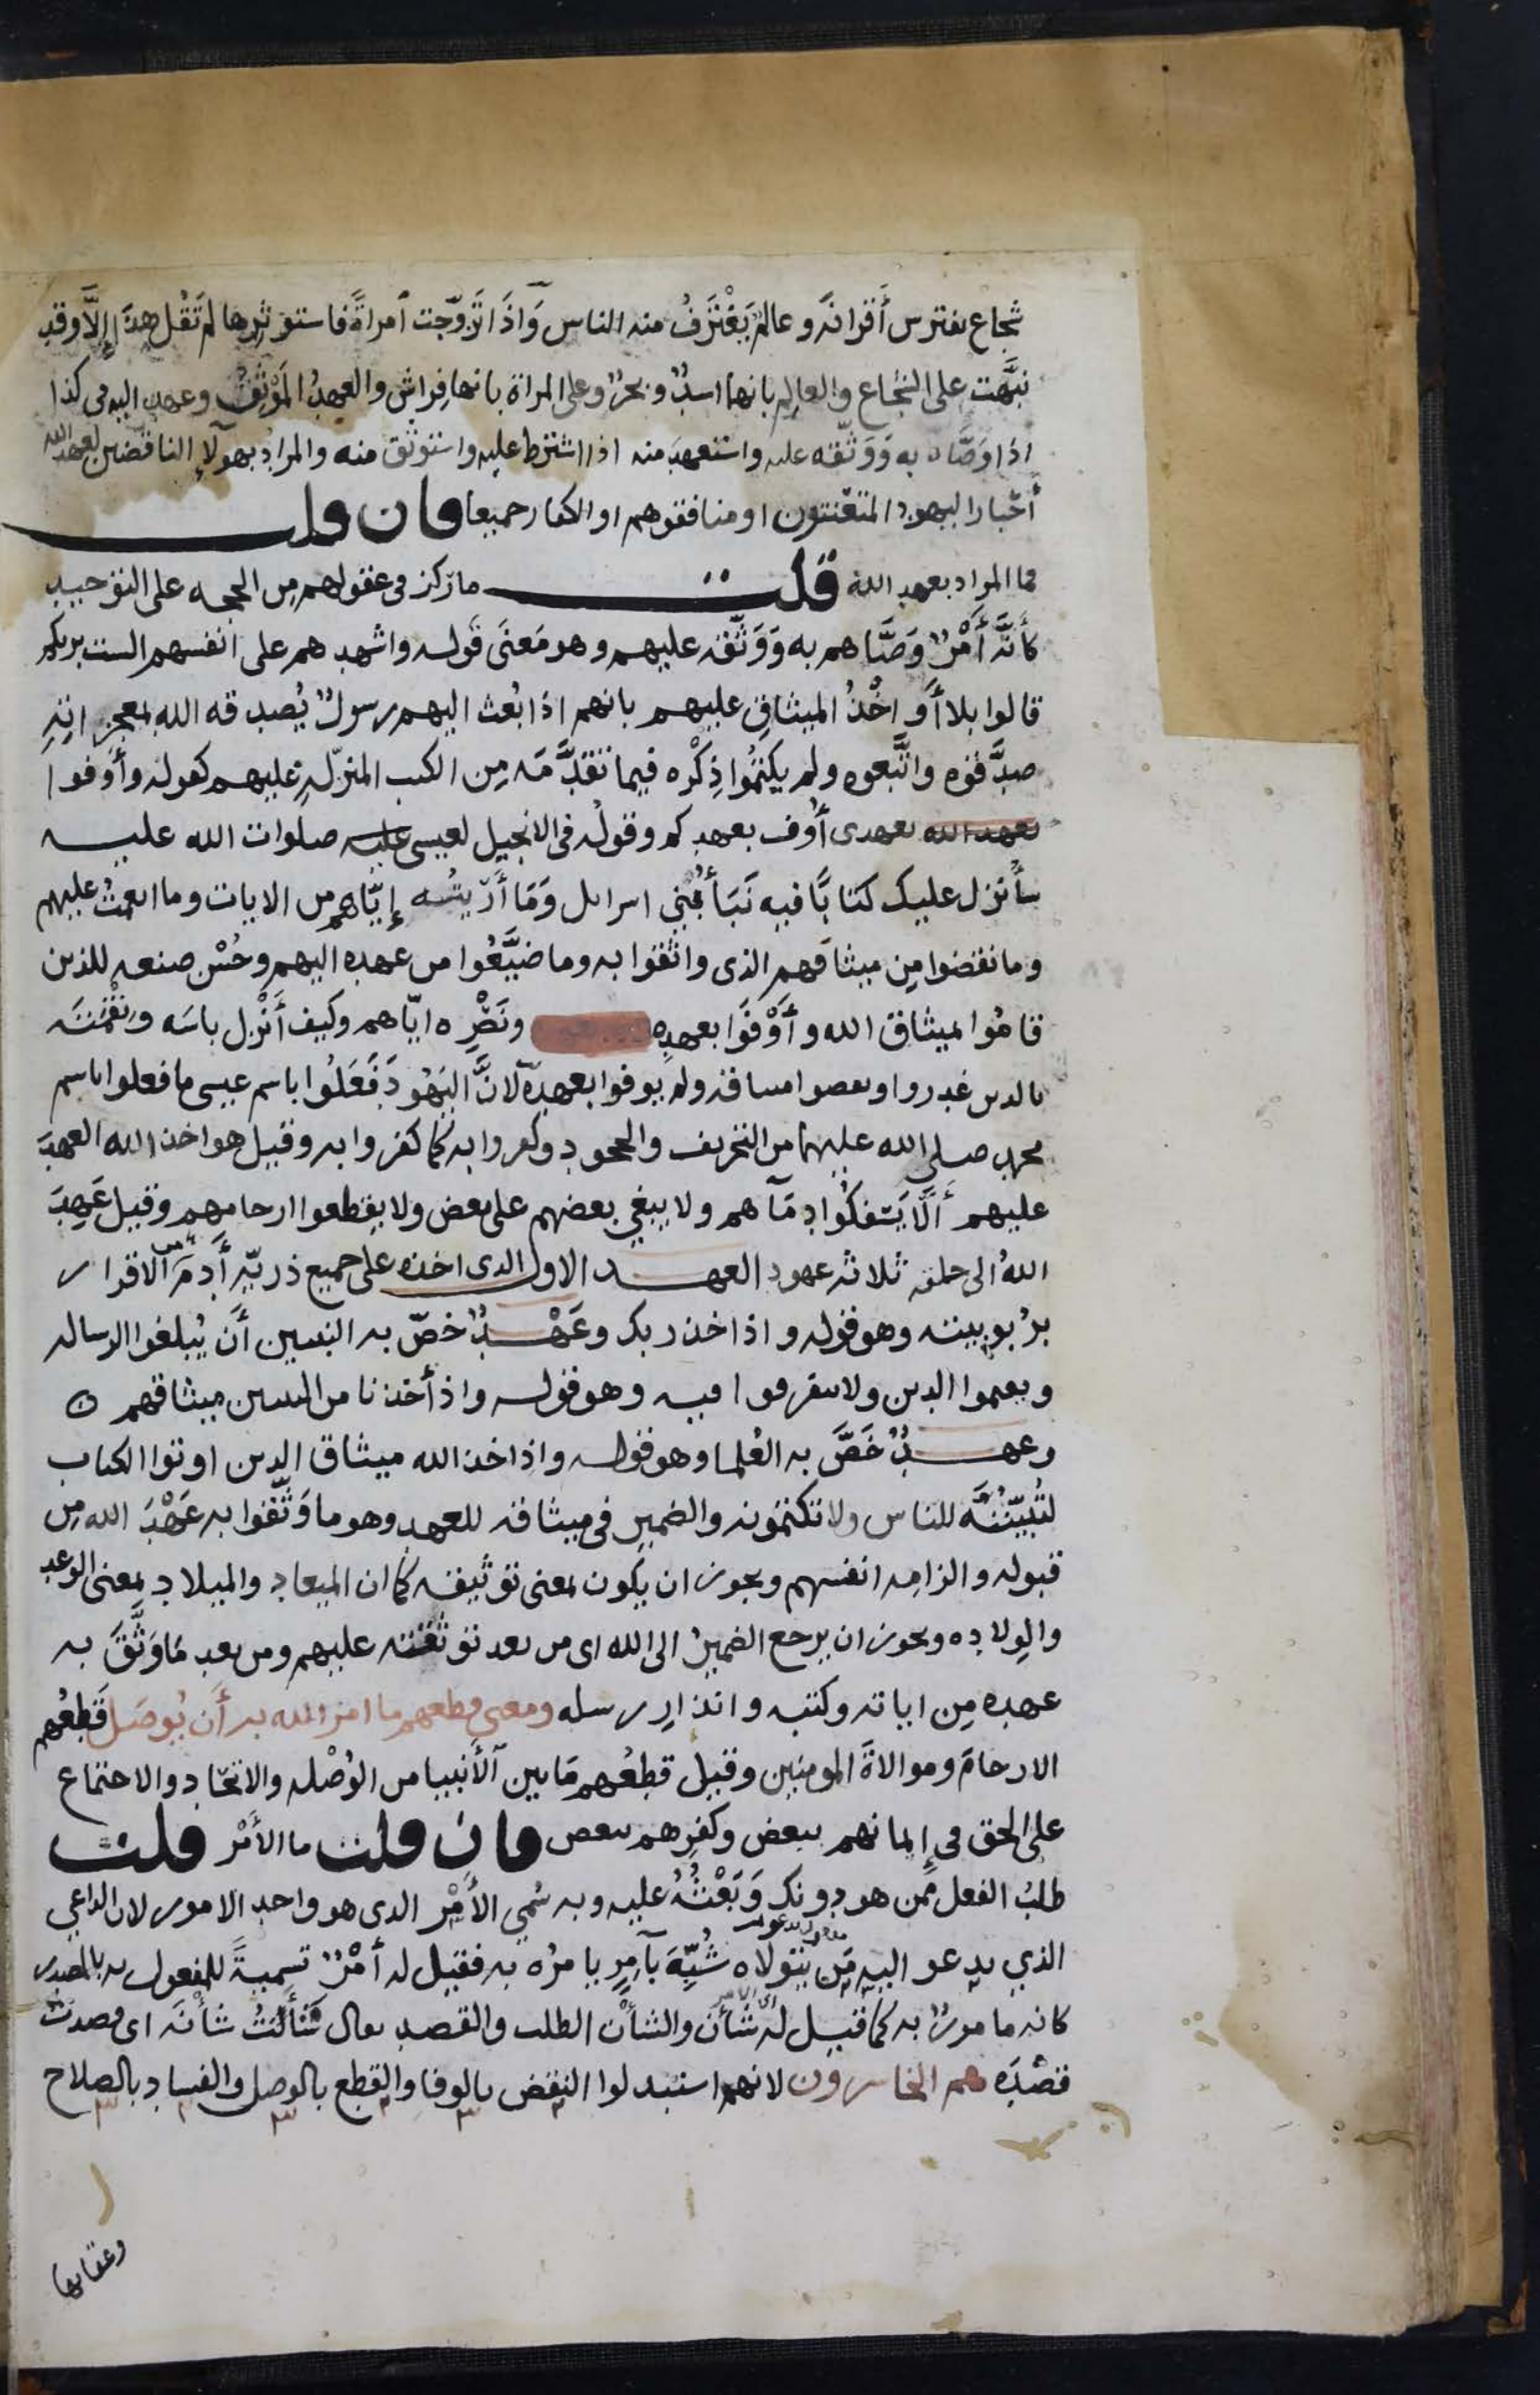 شجاع يفترس أَقرانَه وعالمٌ يَغْتَرِفُ منه الناس وَاذَا تَزَوّجت ٱمراةً فاستوثرها لم تَقُل هذا إِلَّا وقد
نبَّهت على الشجاع والعالِم بانهما اسدٌ وبحرٌ وعلى المراة بانها فِراش والعهدُ المَوْثِقُ وعهد اليه فى كذا
اذا وَصَّاه به وَوَثَّقه عليه واستعهدَ منه اذا اشترط عليه واستوثق منه والمراد بهولآء الناقضين لعهد الله
أحْبار اليهود المتعنتون او منافقوهم او الكفار جميعا فان قلت
فما المراد بعهد الله قلت ما ركز فى عقولهم مِن الحجه على التوحيد
كأنَّه أَمْرٌ وَصَّاهم به وَوَثَّقَه عليهم وهو مَعنَى قوله واشهدهم على انفسهم الست بربكم
قالوا بلا أَو اخْذُ الميثاقِ عليهم بانهم اذا بُعث اليهم رسولٌ يُصدقه الله بمعجزاتِهِ
صدَّقوه واتَّبعوه ولم يكتمُوا ذِكْرَه فيما تقدَّمَه مِن الكتب المنزّلهِ عليهم كقوله وأَوفوا
بعهد الله بعهدى أُوف بعهدكم وقولُه فى الانجيل لعيسى عليه صلوات الله عليه
سأُنزل عليك كتابًا فيه نَبَأُ بَنِي اسرايل وَمَا أَرَيتُه إِيّاهم من الايات وما انعمتُ عليهم
وما نقضوا مِن ميثاقهم الذى واثقوا به وما ضيَّعُوا من عهده اليهم وحُسْن صنعه للذين
قامُوا بميثاق الله وأَوْفَوا بعهدِه ونَصْرِه ايّاهم وكيف أَنْزل باسَه ونِقْمتَه
بالذين غدروا ونقضوا ميثاقه ولم يوفوا بعهدِهٓ لانَّ اليَهُودَ فَعَلُوا باسم عيسى ما فعلوا باسم
محمد صلى الله عليهما من التحريف والجحود وكفروا به كما كفروا به وقيل هو اخذ الله العهدَ
عليهم أَلَّا يَسْفكُوا دِمَآهم ولا يبغي بعضهم على بعض ولا يقطعوا ارحامهم وقيل عَهِدَ
اللهُ الى خلقه ثلاثه عهود العهد الاول الذى اخذه على جميع ذريّه أَدَمَ الاقرار
برُبوبيته وهو قوله واذ اخذ ربك وعَهْدٌ خصّ به النبيين أَن يُبلغوا الرساله
ويقيموا الدين ولا يتفرقوا فيه وهو قوله واذ أَخذنا من النبيين ميثاقهم
وعهدٌ خَصَّ به العُلما وهو قوله واذ اخذ الله ميثاق الذين اوتوا الكتاب
لتُبيِّنُنَّه للناس ولا تكتمونه والضمير فى ميثاقه للعهد وهو ما وَثَّقوا به عَهْدَ الله مِن
قبوله والزامِه انفسهم ويجوز ان يكون بمعنى توثيقه كما ان الميعاد والميلاد بمعنى الوعد
والوِلاده ويجوز ان يرجع الضميرُ الى الله اى من بعد توثقته عليهم ومن بعد مَا وَثَّقَ به
عهده مِن اياته وكتبه وانذارِ رسله ومعنى قطعهم ما امر الله به أَن يُوصَل قَطعُهم
الارحامَ وموالاةَ المومنين وقيل قطعُهم مَا بين ٱلأَنبيا من الوُصْله والاتحاد والاجتماع
على الحق فى إِيمانهم ببعض وكفرِهم ببعض فان قلت ما الأَمْر قلت
طلبُ الفعل ممن هو دونك وَبَعْثُهُ عليه وبه سُمي الأَمْر الذى هو واحد الامور لان الداعي
الذي يدعو اليه مَن يتولاه شُبِّهَ بآمِرٍ يامرُه به فقيل له أمْرٌ تسميةً للمفعول به بالمصدر
كانه مامورٌ به كما قيل له شَأْن والشأْن الطلب والقصد يقال شَأَنْتُ شأنَه اى قصدتُ
قصْدَه هم الخاسرون لانهم استبدلوا النقض بالوفا والقطع بالوصل والفساد بالصلاح
وعقابها